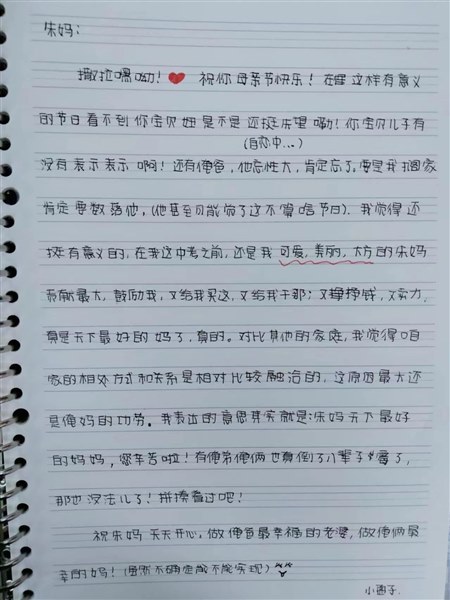 朱妈:
撒拉嘿呦!❤ 祝你母亲节快乐!在这样有意义
的节日看不到你宝贝妞是不是还挺失望嘞!你宝贝儿子有
(自恋中...)
没有表示表示啊!还有俺爸,他忘性大,肯定忘了。要是我搁家
肯定要数落他,(他甚至可能忘了这不算啥节日)。我觉得还
挺有意义的,在我这中考之前,还是我可爱,美丽,大方的朱妈
贡献最大,鼓励我,又给我买这,又给我干那;又挣挣钱,又卖力,
真是天下最好的妈了,真的。对比其他的家庭,我觉得咱
家的相处方式和关系是相对比较融洽的,这原因最大还
是俺妈的功劳。我表达的意思其实就是:朱妈天下最好
的妈妈,您辛苦啦!有俺弟俺俩也真倒了八辈子霉了,
那也没法儿了!拼凑着过吧!
祝朱妈天天开心,做俺爸最幸福的老婆,做俺俩最
幸的妈!(虽然不确定能不能实现)